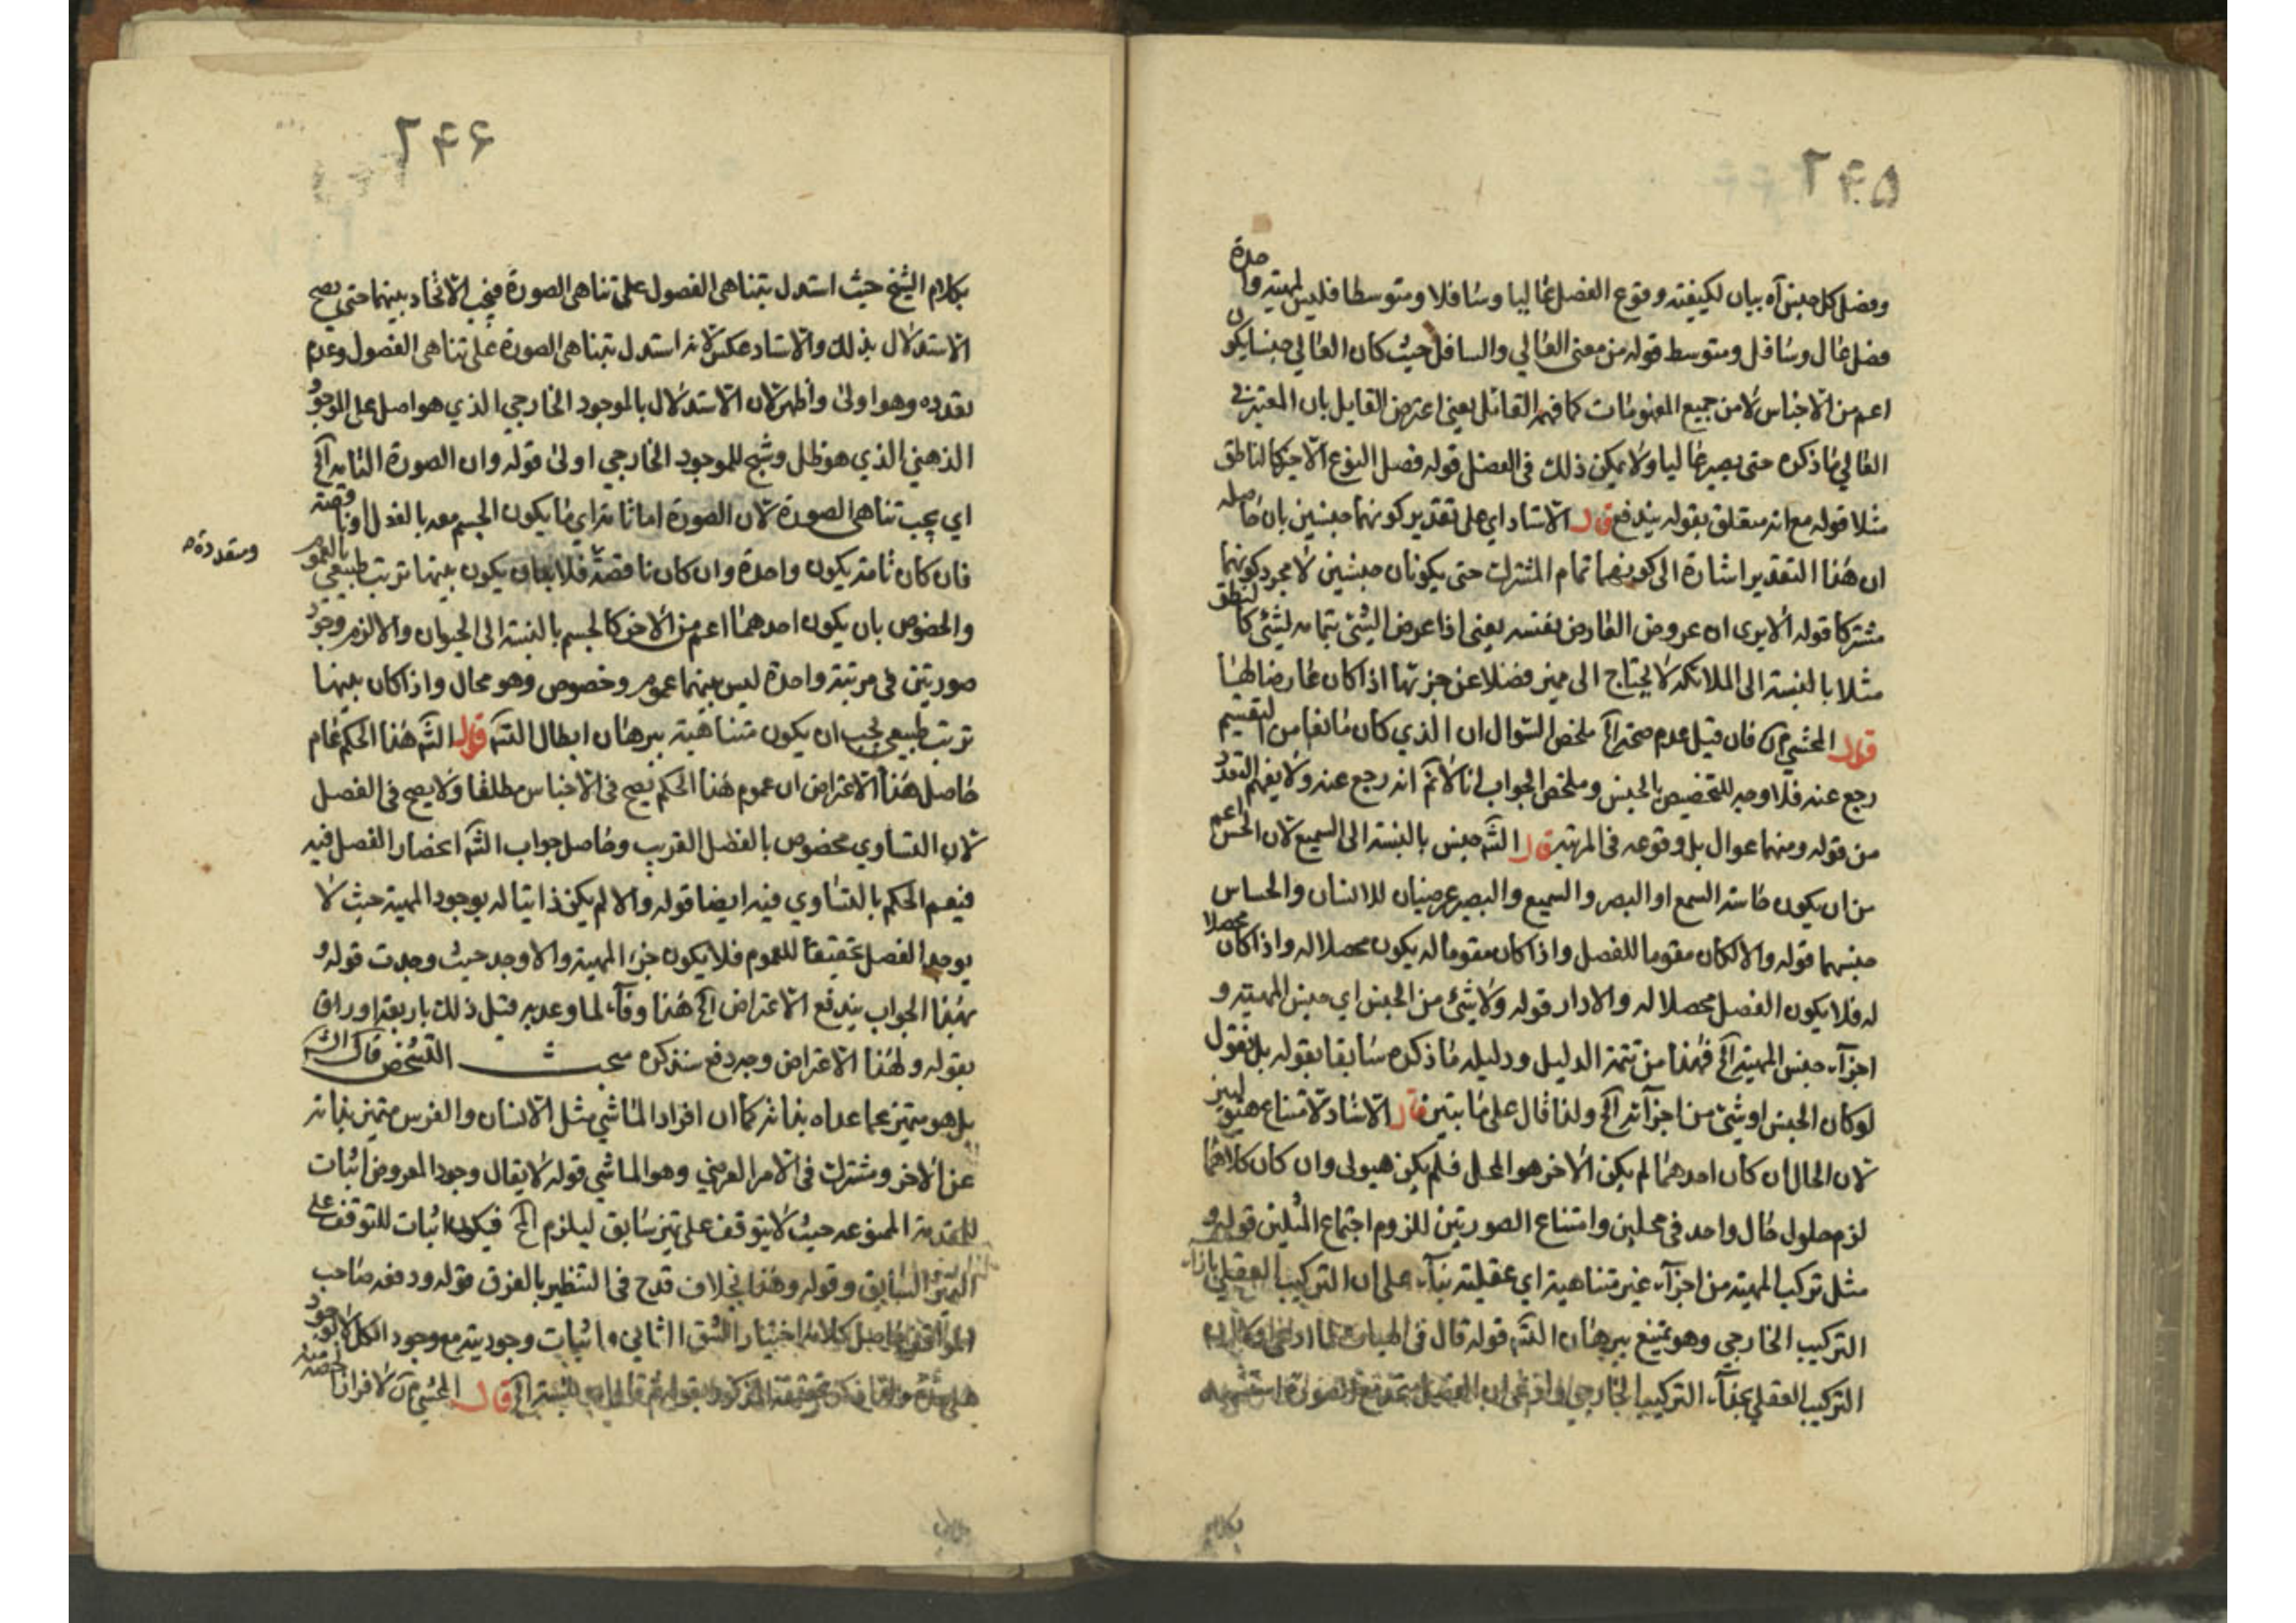 ٢٤٥
وفصل كل جنس آه بيان لكيفية وقوع الفصل عاليا وسافلا ومتوسطا فليس لمهية واحدة
فصل عال وسافل ومتوسط قوله من معنى العالي والسافل حيث كان العالي جنسا يكون
اعم من الاجناس لا من جميع المفهومات كما فهم القائل يعني اعترض القايل بان المعتبر في
العالي ما ذكره حتى يصير عاليا ولا يمكن ذلك في الفصل قوله فصل النوع الاخير كالناطق
مثلا قوله مع انه متعلق بقوله يندفع قال الاستاد اي على تقدير كونهما جنسين بان حاصله
ان هذا التقدير اشارة الى كونهما تمام المشترك حتى يكونان جنسين لا مجرد كونهما
مشتركا قوله الا يرى ان عروض العارض بنفسه يعني اذا عرض الشئ بتمامه لشئ كالنطق
مثلا بالنسبة الى الملائكة لا يحتاج الى مميز فضلا عن جزئها اذا كان عارضا لها
قوله المحشي فان قيل عدم صحة الخ ملخص السؤال ان الذي كان مانعا من التقسيم
رجع عنه فلا وجه للتخصيص بالجنس وملخص الجواب انا لا نم انه رجع عنه ولا يفهم التعدد
من قوله ومنهما عوال بل وقوعه في المرتبة قال الشه جنس بالنسبة الى السميع لان الحس اعم
من ان يكون حاسة السمع او البصر والسميع والبصير عرضيان للانسان والحساس
جنسهما قوله والا لكان مقوما للفصل واذا كان مقوما له يكون محصلا له واذا كان محصلا
له فلا يكون الفصل محصلا له والا دار قوله ولا شئ من الجنس اي جنس المهية و
اجزاء جنس المهية الخ فهذا من تتمة الدليل ودليله ما ذكره سابقا بقوله بل نقول
لو كان الجنس او شئ من اجزائه الخ ولذا قال على ما يتبين قال الاستاد لامتناع
لان الحال ان كان احدهما لم يكن الاخر هو المحل فلم يكن هيولى وان كان كلاهما
لزم حلول حال واحد في محلين وامتناع الصورتين للزوم اجتماع المثلين قوله و
مثل تركب المهية من اجزاء غير متناهية اي عقلية بناء على ان التركيب العقلي بازاء
التركيب الخارجي وهو يمتنع ببرهان الشه قوله قال في الهيات
التركيب العقلي بحذاء التركيب الخارجي
بكلام
٢٤٦
بكلام الشيخ حيث استدل بتناهي الفصول على تناهي الصورة فيجب الاتحاد بينهما حتى يصح
الاستدلال بذلك والاستاد عكس لانه استدل بتناهي الصورة على تناهي الفصول وعدم
تعدده وهو اولى واظهر لان الاستدلال بالموجود الخارجي الذي هو اصل على الموجود
الذهني الذي هو ظل وشبح للموجود الخارجي اولى قوله وان الصورة التامة الخ
اي يجب تناهي الصورة لان الصورة اما تامة اي ما يكون الجسم معه بالفعل او ناقصة
فان كان تامة يكون واحدة وان كان ناقصة فلا بد ان يكون بينها ترتيب طبيعي بالعموم
ومتعددة
والخصوص بان يكون احدهما اعم من الاخر كالجسم بالنسبة الى الحيوان والا لزم وجود
صورتين في مرتبة واحدة ليس بينهما عموم وخصوص وهو محال واذا كان بينها
ترتيب طبيعي يجب ان يكون متناهية ببرهان ابطال التسه قوله الشه هذا الحكم عام
حاصل هذا الاعتراض ان عموم هذا الحكم يصح في الاجناس مطلقا ولا يصح في الفصل
لان التساوي مخصوص بالفصل القريب وحاصل جواب الشه انحصار الفصل فيه
فيعم الحكم بالتساوي فيه ايضا قوله والا لم يكن ذاتيا له بوجود المهية حيث لا
يوجد الفصل تحقيقا للعموم فلا يكون جزء المهية والا وجد حيث وجدت قوله و
بهذا الجواب يندفع الاعتراض الخ هذا وفاء لما وعد به قبل ذلك باربعة اوراق
بقوله ولهذا الاعتراض وجه دفع سنذكره مبحث التشخص قال الشه
بل هو متميز عما عداه بذاته كما ان افراد الماشي مثل الانسان والفرس متميز بذاته
عن الاخر ومشترك في الامر العرضي وهو الماشي قوله لا يقال وجود المعروض اثبات
للمقدمة الممنوعة حيث لا يتوقف على تميز سابق ليلزم الخ فيكون اثبات للتوقف على
التميز السابق وقوله وهذا بخلاف قدح في التنظير بالفرق قوله ودفعه صاحب
المواقف حاصل كلامه اختيار الشق الثاني واثبات وجوديته مع وجود الكل
قال المحشي لا فرانا